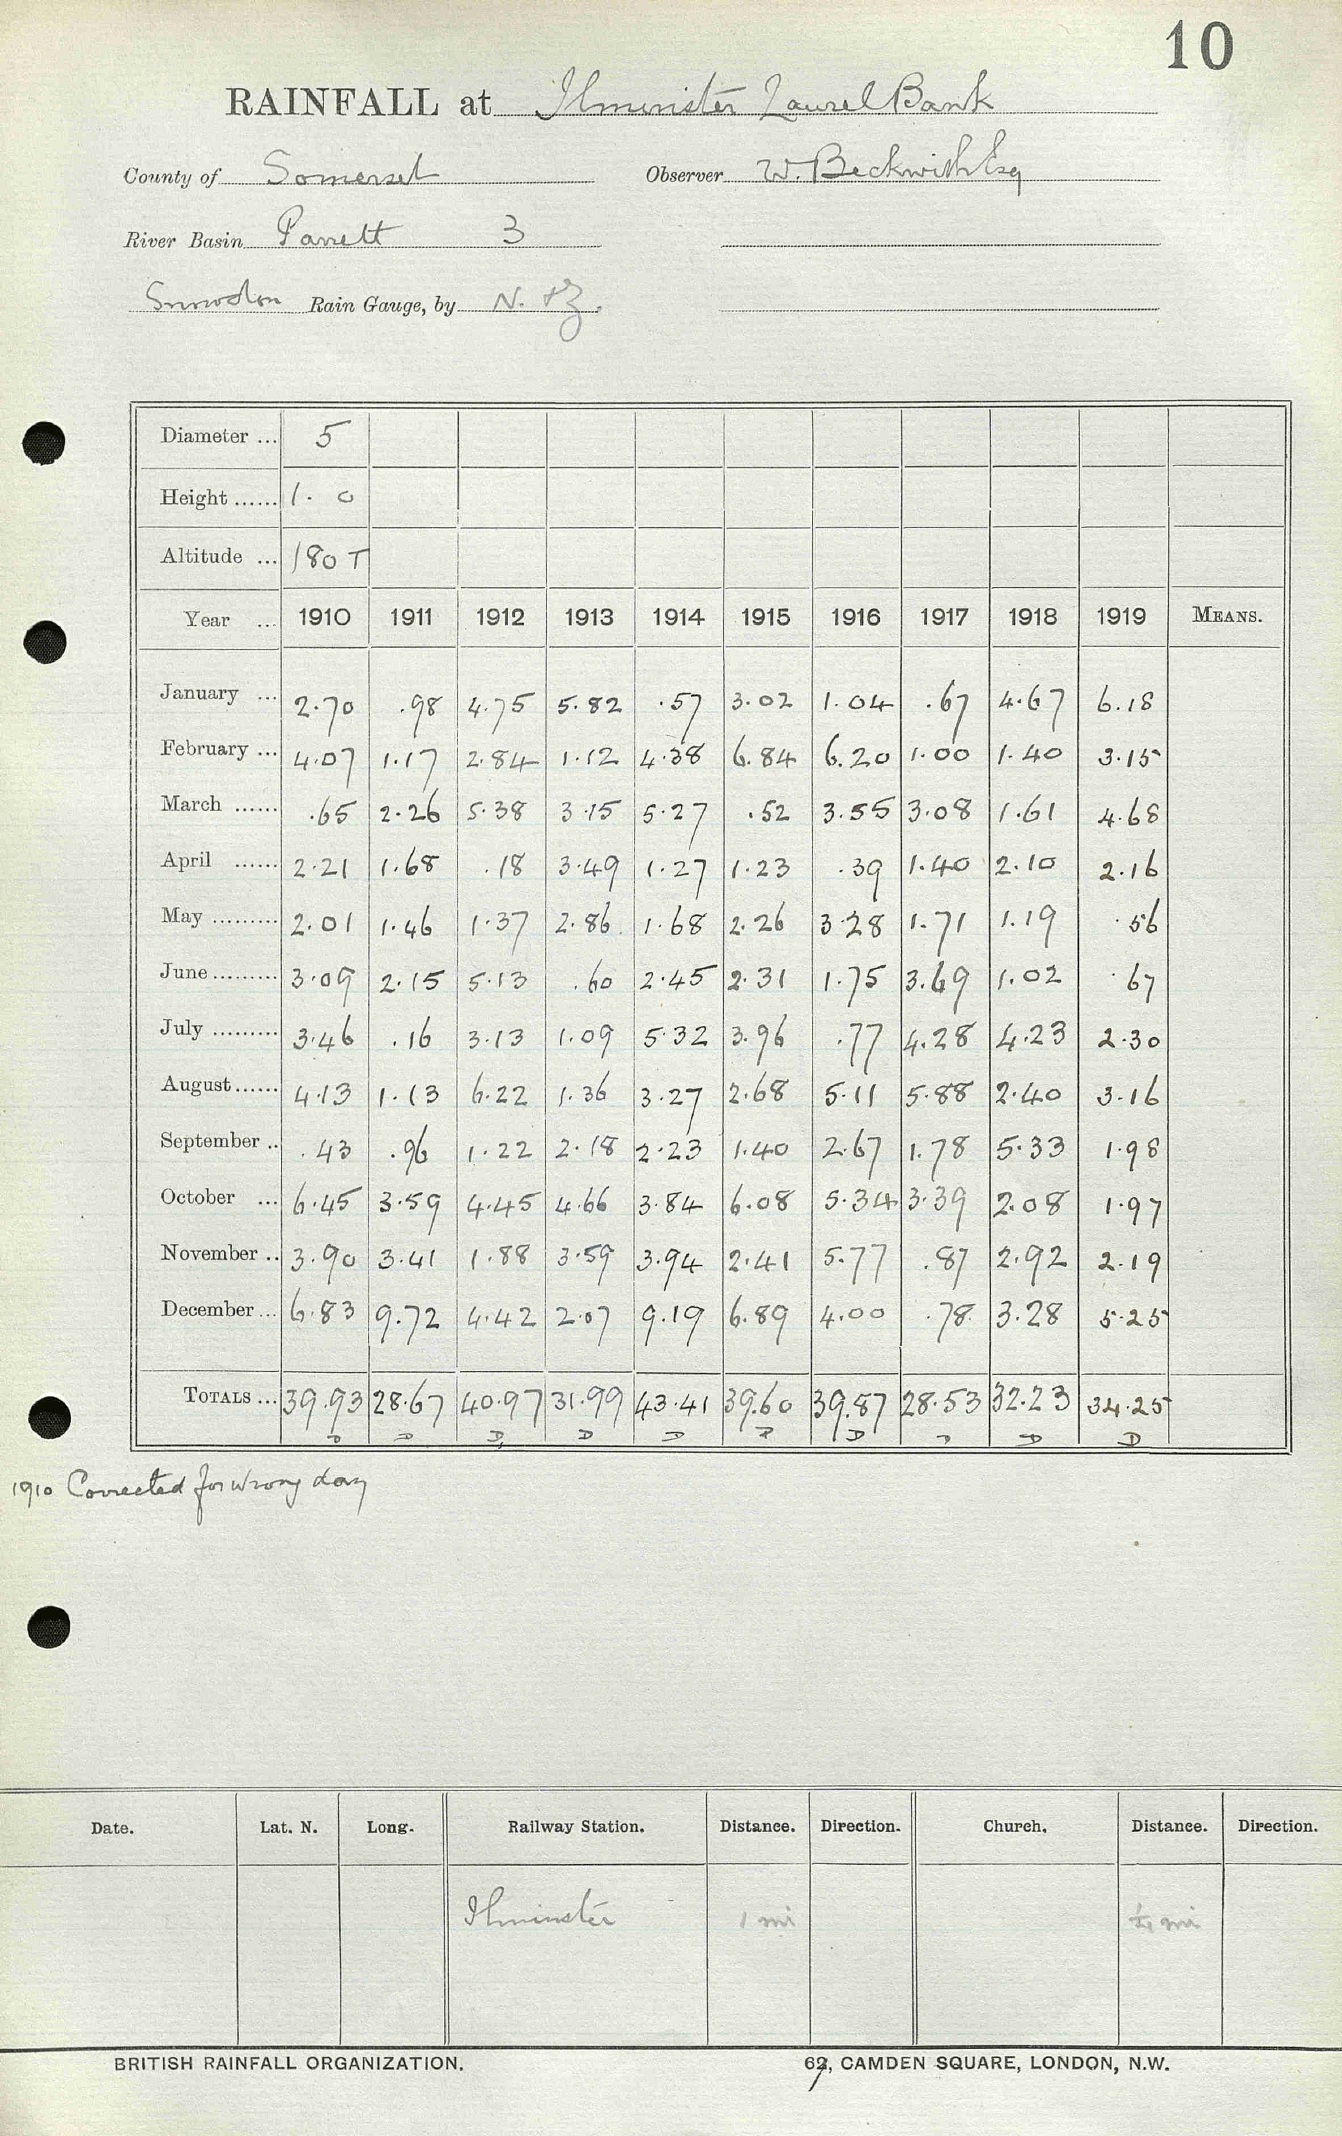 10
RAINFALL at Ilminster Laurel Bank
County of Somerset Observer W. Beckwith Esq
River Basin Parrett 3
Snowdon Rain Gauge, by N. & Z.
Diameter ... 5
Height ...... 1. 0
Altitude ... 180 T
Year ... 1910 1911 1912 1913 1914 1915 1916 1917 1918 1919 MEANS.
January ... 2.70 .98 4.75 5.82 .57 3.02 1.04 .67 4.67 6.18
February ... 4.07 1.17 2.84 1.12 4.38 6.84 6.20 1.00 1.40 3.15
March ...... .65 2.26 5.38 3.15 5.27 .52 3.55 3.08 1.61 4.68
April ...... 2.21 1.68 .18 3.49 1.27 1.23 .39 1.40 2.10 2.16
May ......... 2.01 1.46 1.37 2.86 1.68 2.26 3.28 1.71 1.19 .56
June ......... 3.09 2.15 5.13 .60 2.45 2.31 1.75 3.69 1.02 .67
July ......... 3.46 .16 3.13 1.09 5.32 3.96 .77 4.28 4.23 2.30
August ...... 4.13 1.13 6.22 1.36 3.27 2.68 5.11 5.88 2.40 3.16
September .. .43 .96 1.22 2.18 2.23 1.40 2.67 1.78 5.33 1.98
October ... 6.45 3.59 4.45 4.66 3.84 6.08 5.34 3.39 2.08 1.97
November .. 3.90 3.41 1.88 3.59 3.94 2.41 5.77 .87 2.92 2.19
December ... 6.83 9.72 4.42 2.07 9.19 6.89 4.00 .78 3.28 5.25
TOTALS ... 39.93 28.67 40.97 31.99 43.41 39.60 39.87 28.53 32.23 34.25
D D D D D D D D D D
1910 Corrected for wrong day
Date. Lat. N. Long. Railway Station. Distance. Direction. Church. Distance. Direction.
Ilminster 1 mi ¼ mi
BRITISH RAINFALL ORGANIZATION. 62, CAMDEN SQUARE, LONDON, N.W.